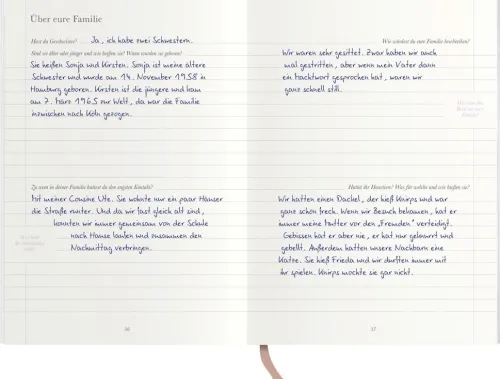 Über eure Familie
Hast du Geschwister? Ja, ich habe zwei Schwestern.
Sind sie älter oder jünger und wie heißen sie? Wann wurden sie geboren?
Sie heißen Sonja und Kirsten. Sonja ist meine ältere
Schwester und wurde am 14. November 1958 in
Hamburg geboren. Kirsten ist die jüngere und kam
am 7. März 1965 zur Welt, da war die Familie
inzwischen nach Köln gezogen.
Zu wem in deiner Familie hattest du den engsten Kontakt?
Mit meiner Cousine Ute. Sie wohnte nur ein paar Häuser
die Straße runter. Und da wir fast gleich alt sind,
konnten wir gemeinsam von der Schule
nach Hause laufen und zusammen den
Nachmittag verbringen.
16
Wie würdest du eure Familie beschreiben?
Wir waren sehr gesittet. Zwar haben wir auch
mal gestritten, aber wenn mein Vater dann
ein Machtwort gesprochen hat, waren wir
ganz schnell still.
Hattet ihr Haustiere? Was für welche und wie hießen sie?
Wir hatten einen Dackel, der hieß Knirps und war
ganz schön frech. Wenn wir Besuch bekamen, hat er
immer meine Mutter vor den „Fremden" verteidigt.
Gebissen hat er aber nie, er hat nur geknurrt und
gebellt. Außerdem hatten unsere Nachbarn eine
Katze. Sie hieß Frieda und wir durften immer mit
ihr spielen. Knirps mochte sie gar nicht.
17